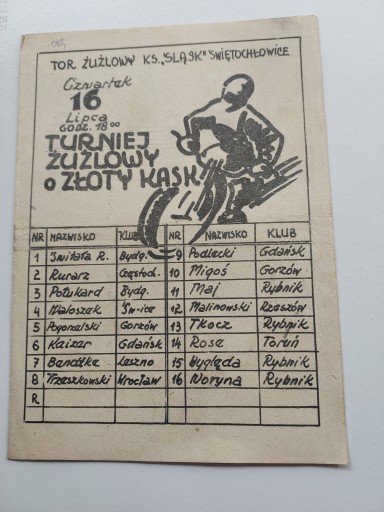 TOR ŻUŻLOWY KS. „SLĄSK" SWIĘTOCHŁOWICE
Czwartek
16
Lipca
GODZ. 18⁰⁰
TURNIEJ
ŻUŻLOWY
o ZŁOTY KASK
NR NAZWISKO KLUB NR NAZWISKO KLUB
1 Świtała R. Bydg. 9 Podlecki Gdańsk
2 Rurarz Częstoch. 10 Migoś Gorzów
3 Potukard Bydg. 11 Maj Rybnik
4 Waloszek Św-ice 12 Malinowski Rzeszów
5 Pogorzelski Gorzów 13 Tkocz Rybnik
6 Kaizer Gdańsk 14 Rose Toruń
7 Bendtke Leszno 15 Wyględa Rybnik
8 Trzeszkowski Wrocław 16 Woryna Rybnik
R